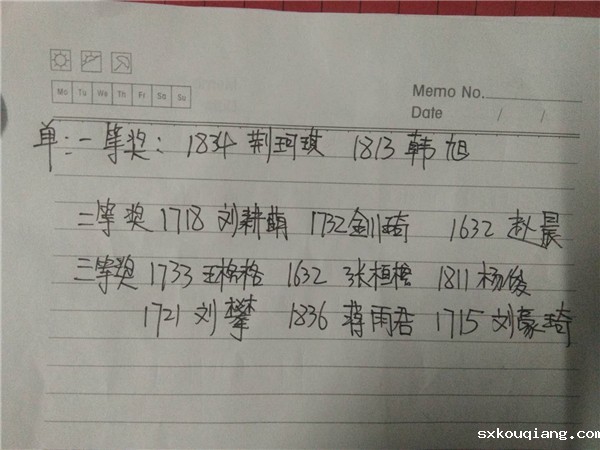 Memo No.
Mo Tu We Th Fr Sa Su
Date / /
单:一等奖: 1834 荆珂琪 1813 韩旭
二等奖 1718 刘耕萌 1732 钏琦 1632 赵晨
三等奖 1733 王格格 1632 张桓 1811 杨俊
1721 刘攀 1836 蒋雨君 1715 刘豪琦
sxkouqiang.com